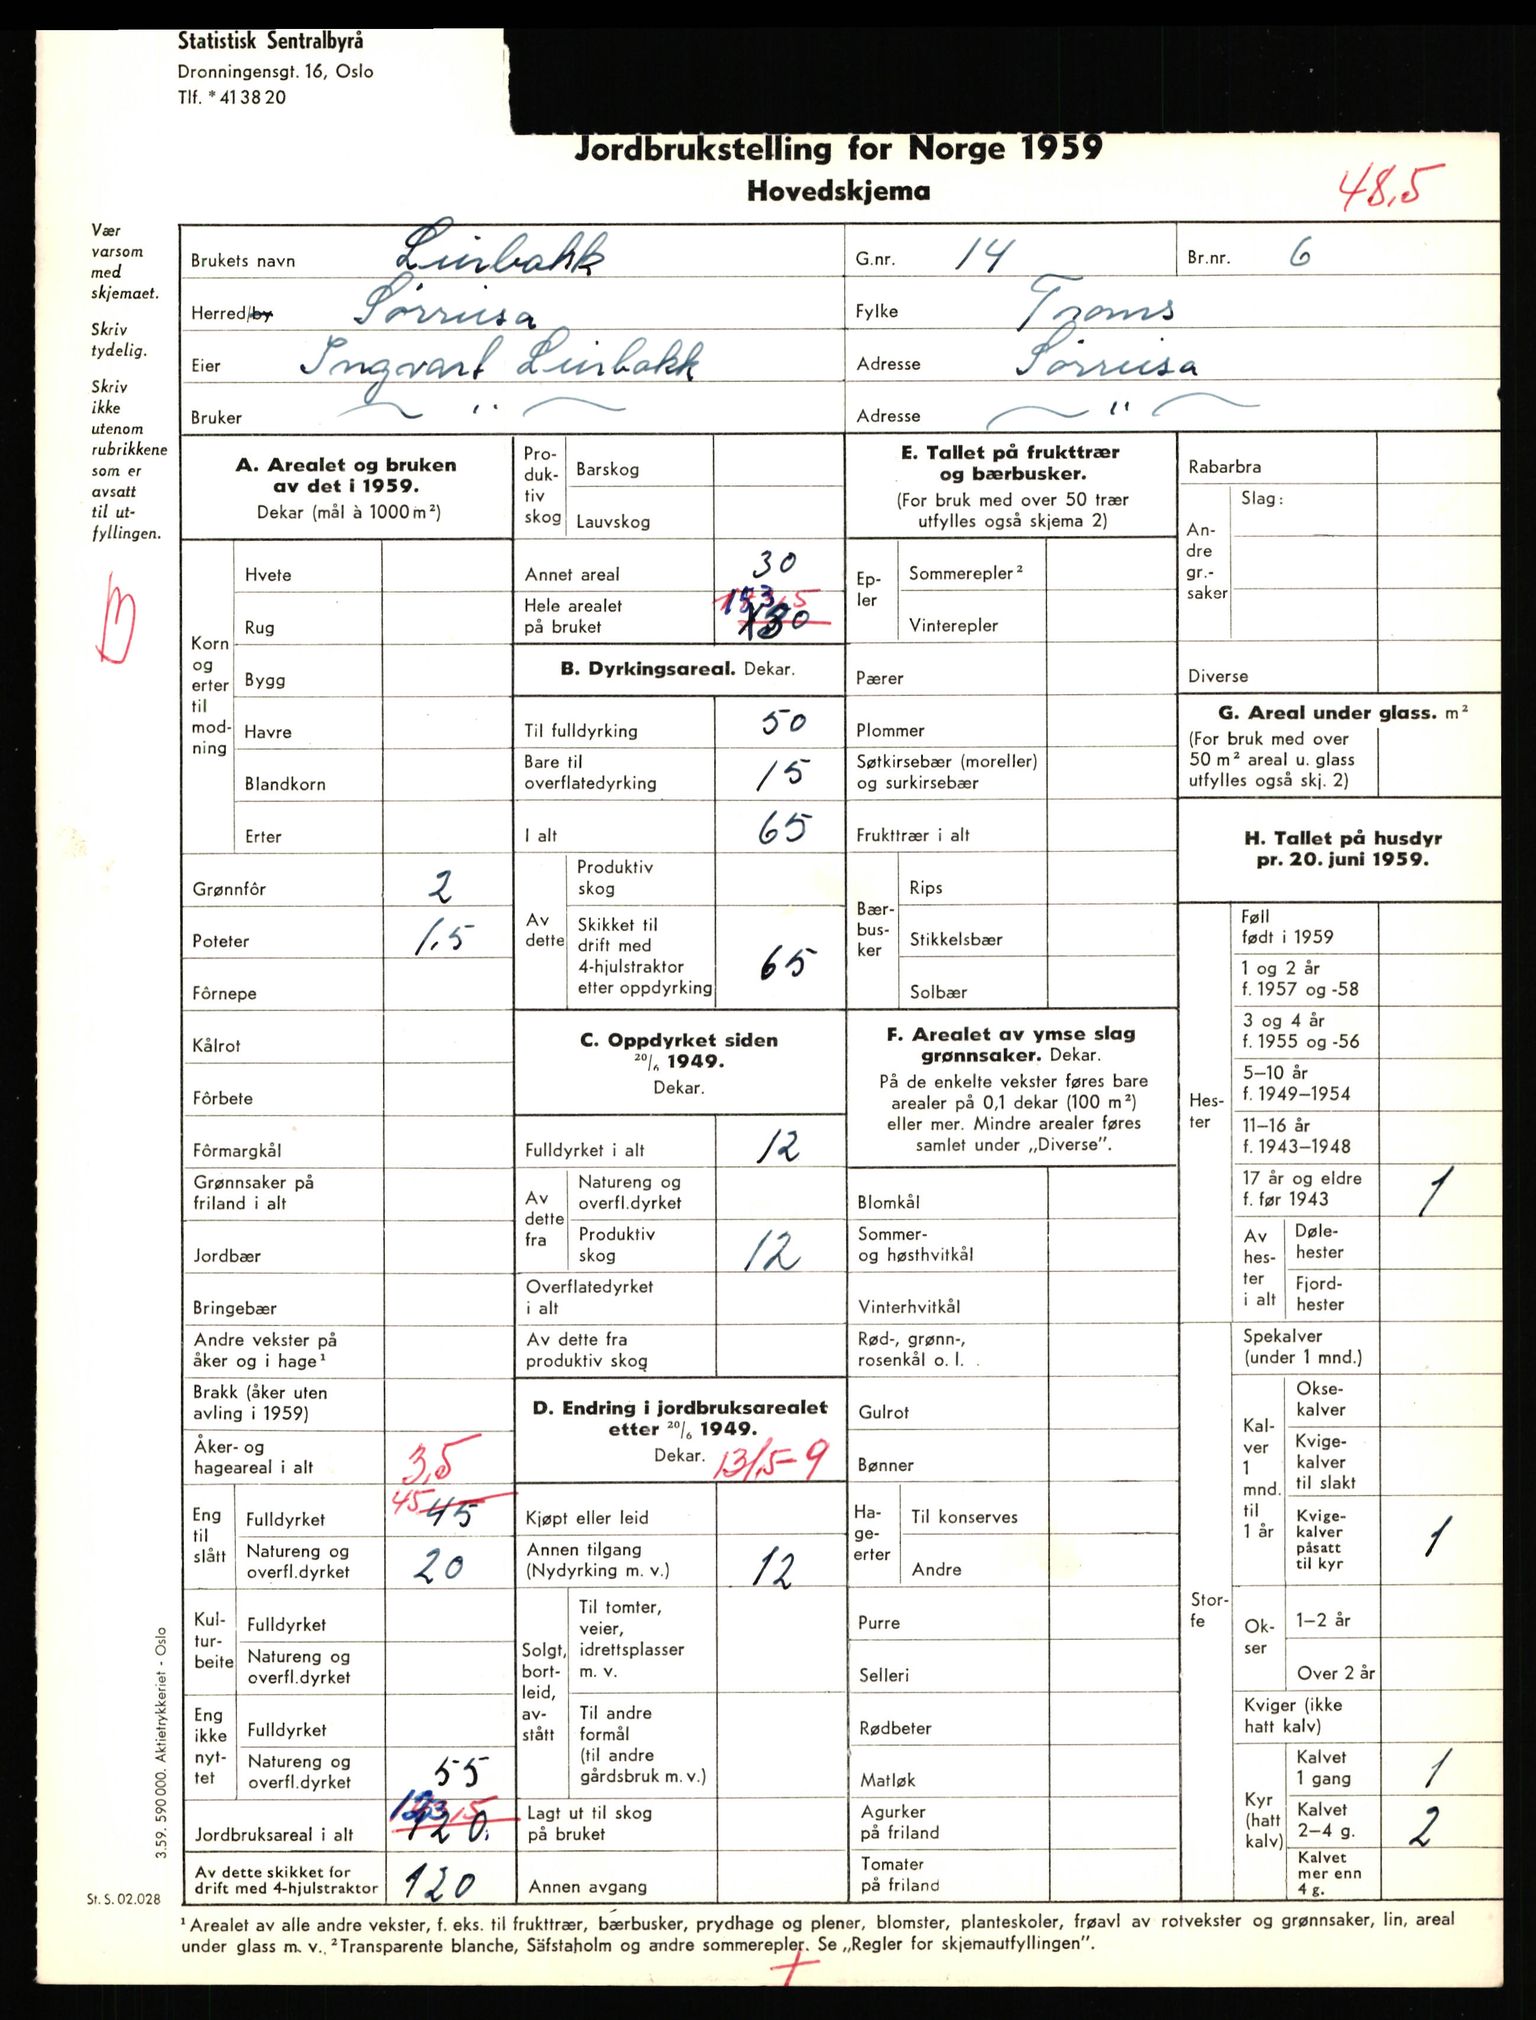 Statistisk Sentralbyrå
Dronningensgt. 16, Oslo
Tlf. * 41 38 20
Jordbrukstelling for Norge 1959
Hovedskjema
48,5
Vær
varsom
med
skjemaet.
Skriv
tydelig.
Skriv
ikke
utenom
rubrikkene
som er
avsatt
til ut-
fyllingen.
Brukets navn Lurbakk G.nr. 14 Br.nr. 6
Herred/by Sørreisa Fylke Troms
Eier Ingvart Lurbakk Adresse Sørreisa
Bruker — " — Adresse — " —
A. Arealet og bruken
av det i 1959.
Dekar (mål à 1000 m²)
Korn
og
erter
til
mod-
ning
Hvete
Rug
Bygg
Havre
Blandkorn
Erter
Grønnfôr 2
Poteter 1,5
Fôrnepe
Kålrot
Fôrbete
Fôrmargkål
Grønnsaker på
friland i alt
Jordbær
Bringebær
Andre vekster på
åker og i hage¹
Brakk (åker uten
avling i 1959)
Åker- og
hageareal i alt 3,5
Eng
til
slått
Fulldyrket 45 45
Natureng og
overfl.dyrket 20
Kul-
tur-
beite
Fulldyrket
Natureng og
overfl.dyrket
Eng
ikke
nyt-
tet
Fulldyrket
Natureng og
overfl.dyrket 55
Jordbruksareal i alt 123,5 120
Av dette skikket for
drift med 4-hjulstraktor 120
Pro-
duk-
tiv
skog
Barskog
Lauvskog
Annet areal 30
Hele arealet
på bruket 153,5 150
B. Dyrkingsareal. Dekar.
Til fulldyrking 50
Bare til
overflatedyrking 15
I alt 65
Av
dette
Produktiv
skog
Skikket til
drift med
4-hjulstraktor
etter oppdyrking 65
C. Oppdyrket siden
20/6 1949.
Dekar.
Fulldyrket i alt 12
Av
dette
fra
Natureng og
overfl.dyrket
Produktiv
skog 12
Overflatedyrket
i alt
Av dette fra
produktiv skog
D. Endring i jordbruksarealet
etter 20/6 1949.
Dekar. 131,5-9
Kjøpt eller leid
Annen tilgang
(Nydyrking m. v.) 12
Solgt,
bort-
leid,
av-
stått
Til tomter,
veier,
idrettsplasser
m. v.
Til andre
formål
(til andre
gårdsbruk m. v.)
Lagt ut til skog
på bruket
Annen avgang
E. Tallet på frukttrær
og bærbusker.
(For bruk med over 50 trær
utfylles også skjema 2)
Ep-
ler
Sommerepler²
Vinterepler
Pærer
Plommer
Søtkirsebær (moreller)
og surkirsebær
Frukttrær i alt
Bær-
bus-
ker
Rips
Stikkelsbær
Solbær
F. Arealet av ymse slag
grønnsaker. Dekar.
På de enkelte vekster føres bare
arealer på 0,1 dekar (100 m²)
eller mer. Mindre arealer føres
samlet under „Diverse".
Blomkål
Sommer-
og høsthvitkål
Vinterhvitkål
Rød-, grønn-,
rosenkål o. l.
Gulrot
Bønner
Ha-
ge-
erter
Til konserves
Andre
Purre
Selleri
Rødbeter
Matløk
Agurker
på friland
Tomater
på friland
Rabarbra
An-
dre
gr.-
saker
Slag:
Diverse
G. Areal under glass. m²
(For bruk med over
50 m² areal u. glass
utfylles også skj. 2)
H. Tallet på husdyr
pr. 20. juni 1959.
Hes-
ter
Føll
født i 1959
1 og 2 år
f. 1957 og -58
3 og 4 år
f. 1955 og -56
5–10 år
f. 1949–1954
11–16 år
f. 1943–1948
17 år og eldre
f. før 1943 1
Av
hes-
ter
i alt
Døle-
hester
Fjord-
hester
Stor-
fe
Spekalver
(under 1 mnd.)
Kal-
ver
1
mnd.
til
1 år
Okse-
kalver
Kvige-
kalver
til slakt
Kvige-
kalver
påsatt
til kyr 1
Ok-
ser
1–2 år
Over 2 år
Kviger (ikke
hatt kalv)
Kyr
(hatt
kalv)
Kalvet
1 gang 1
Kalvet
2–4 g. 2
Kalvet
mer enn
4 g.
3.59. 590 000. Aktietrykkeriet - Oslo
St. S. 02.028
¹ Arealet av alle andre vekster, f. eks. til frukttrær, bærbusker, prydhage og plener, blomster, planteskoler, frøavl av rotvekster og grønnsaker, lin, areal
under glass m. v. ² Transparente blanche, Säfstaholm og andre sommerepler. Se „Regler for skjemautfyllingen".